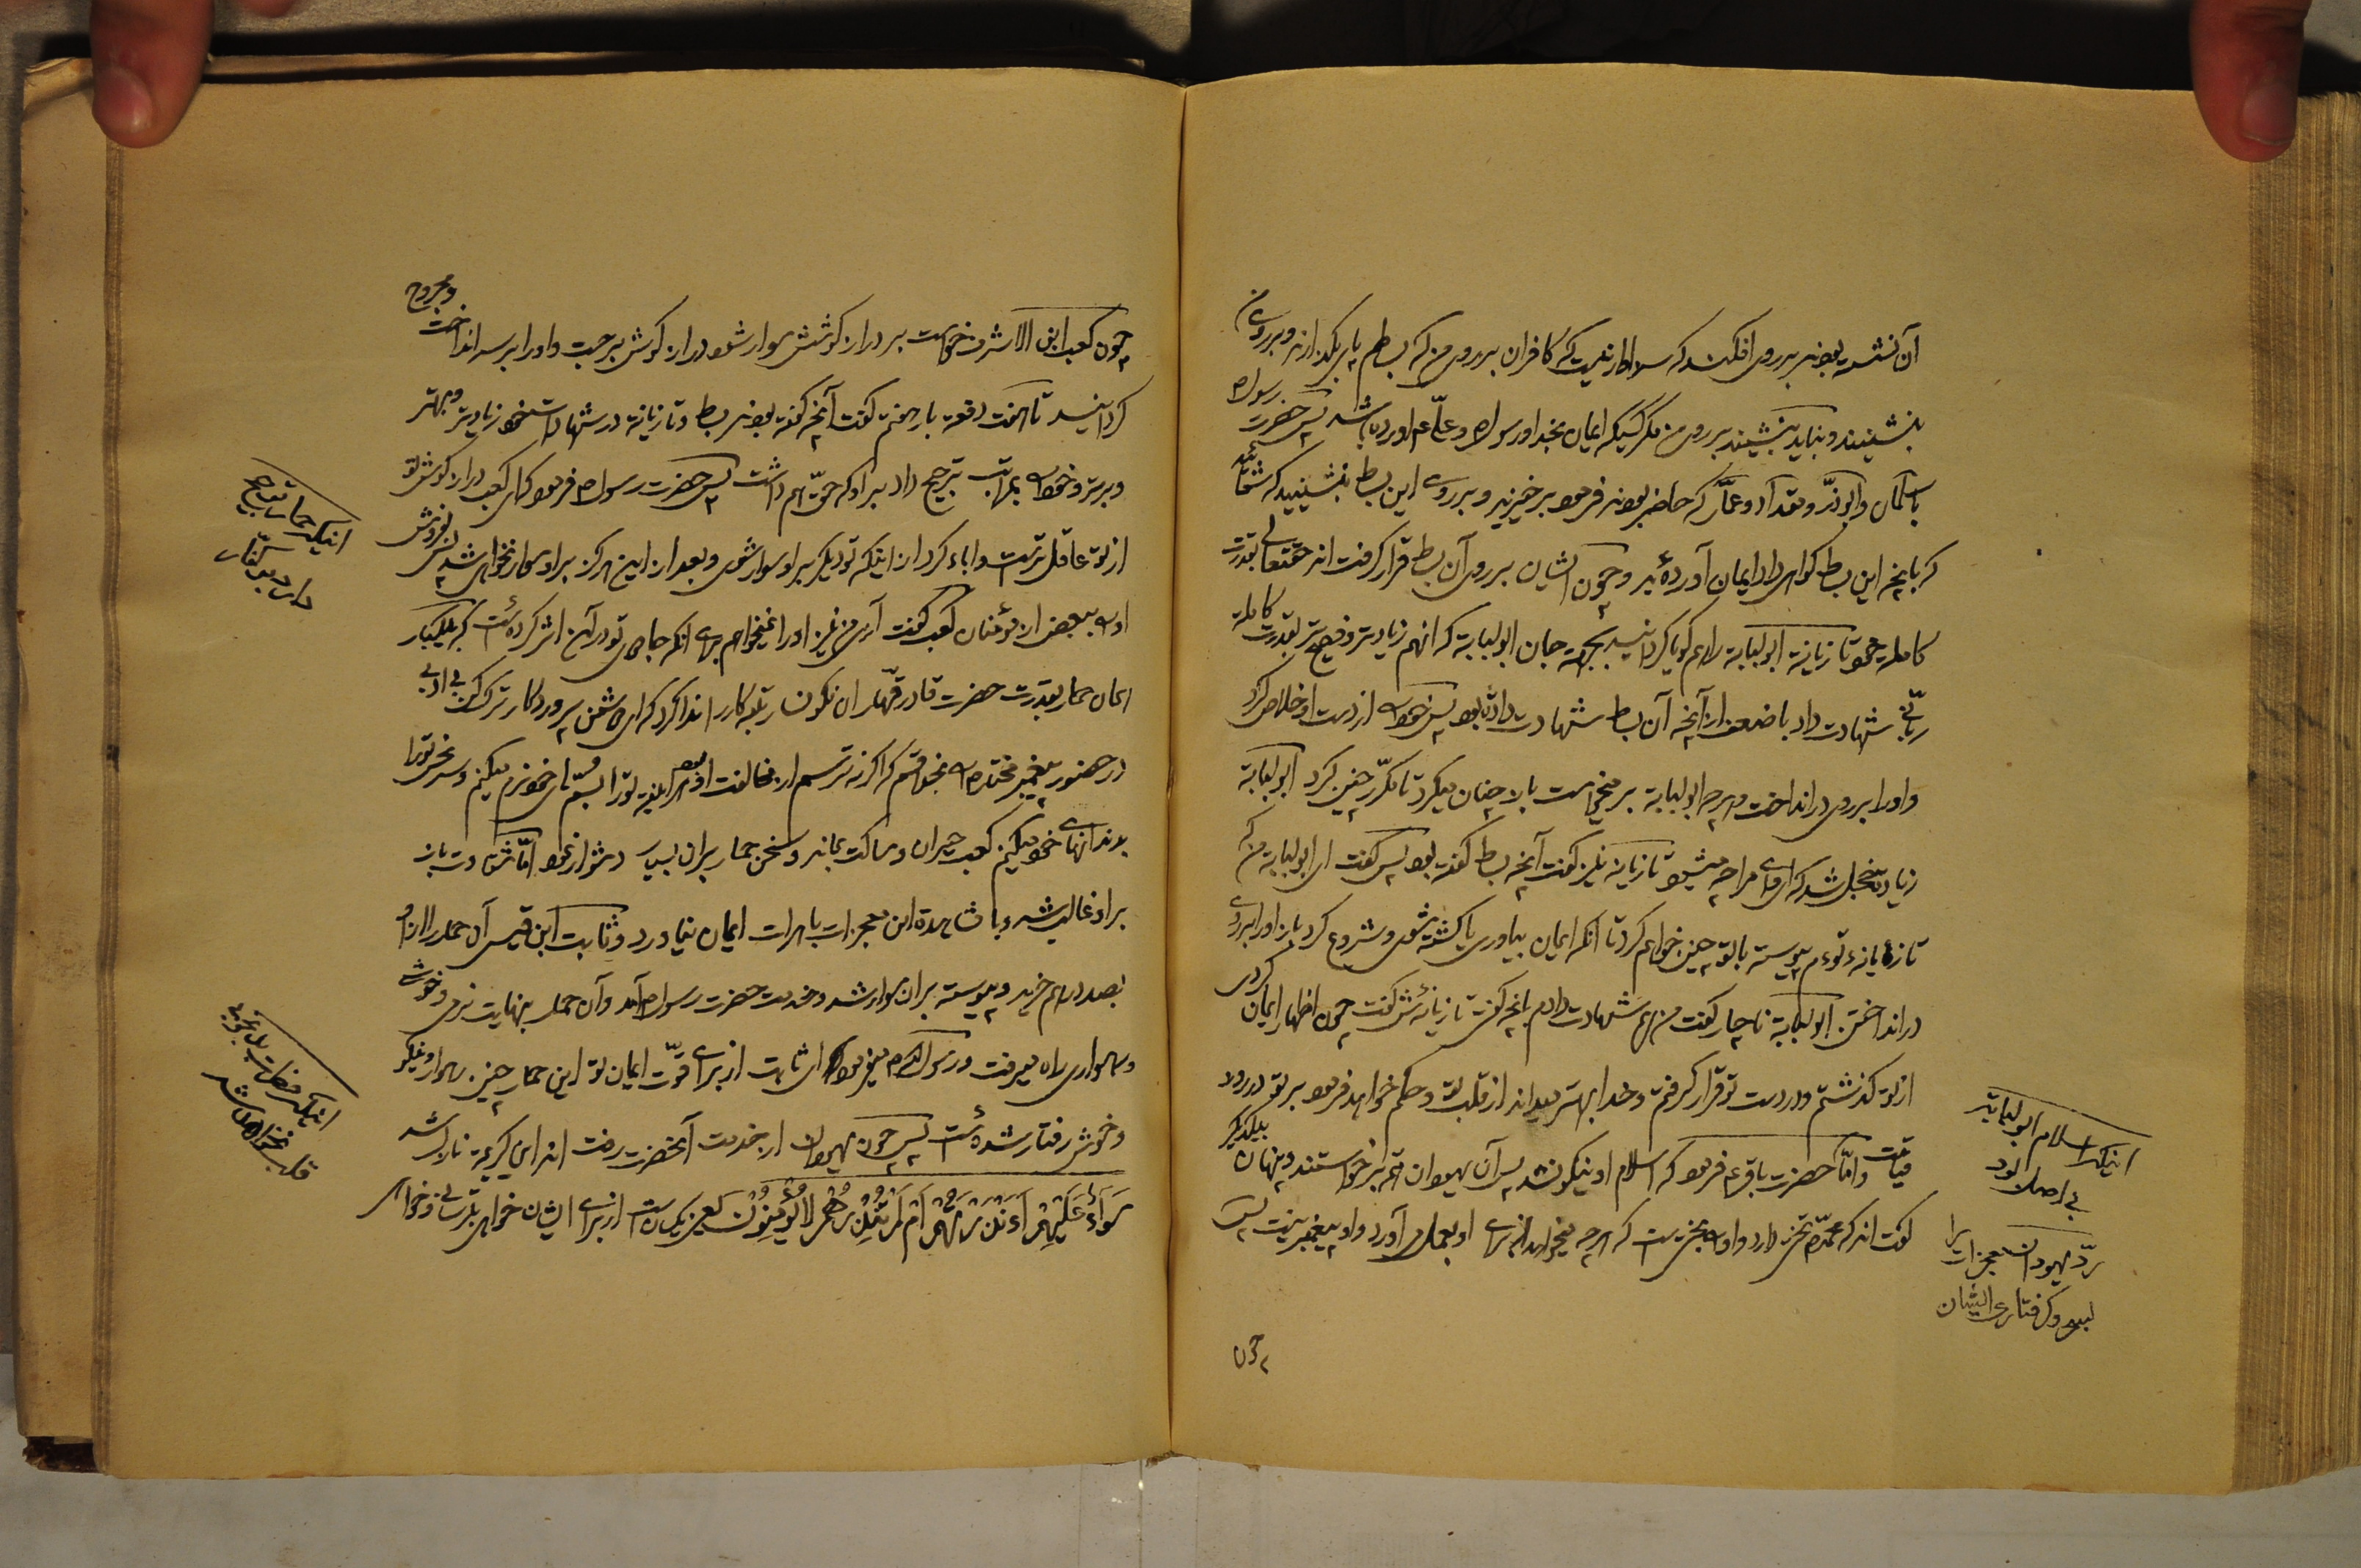 آن نشسته بودند بر روی افکند که سزاوار نیست که کافران بر روی من که بساطم پا بگذارند و بر روی من
بنشینند و نباید بنشیند بر روی من مگر کسیکه ایمان بخدا و رسول ص و علی ع آورده باشد پس حضرت رسول ص
با سلمان و ابوذر و مقداد و عمار که حاضر بودند فرمود برخیزید و بر روی این بساط بنشینید که شمائید
که بانچه این بساط گواهی داد ایمان آورده‌اید و چون ایشان بر روی آن بساط قرار گرفتند حقتعالی بقدرت
کامله خود تازیانه ابولبابه را هم گویا گردانید بجهة جان ابولبابه که آنهم زیادتر و فصیح‌تر بقدرت کامله
ربّانی شهادت داد باضعف از آنچه آن بساط شهادت داده بود پس خود را از دست او خلاص کرد
و او را بر روی در انداخت و هر چه ابولبابه بر میخواست باز چنان میکرد تا مکرّر چنین کرد ابولبابه
زیاده خجل شد که ای وای مرا چه میشود تازیانه نیز گفت آنچه بساط گفته بود پس گفت ای ابولبابه من که
تازیانهٔ توءم پیوسته با تو چنین خواهم کرد تا آنکه ایمان بیاوری یا کشته شوی و شروع کرد باز او را بر روی
در انداختن ابولبابه ناچار گفت من هم شهادت دادم بانچه گفتی تازیانه‌اش گفت چون اظهار ایمان کردی
از تو گذشتم و در دست تو قرار گرفتم و خدا بهتر میداند از قلب تو و حکم خواهد فرمود بر تو در روز
قیامت و امّا حضرت باقر ع فرمود که اسلام او نیکو نشد پس آن یهودان همه برخواستند و پنهان بیکدیگر
گفتند که محمّد ص بختی دارد و او صاحب بختی است که هر چه میخواهد از برای او بعمل می‌آورد و او پیغمبر نیست پس
اینکه اسلام ابولبابه
بی اصل بود
ردّ یهودان معجزات را
بسحر و گرفتاری ایشان
چون
چون کعب ابن الاشرف خواست بر دراز گوشش سوار شود دراز گوش برجست و او را بر سر انداخت و مجروح
گردانید تا هفت دفعه بار هفتم گفت آنچه گفته بودند بساط و تازیانه در شهادت خود زیادتر و بهتر
و برتر و خود را بمراتب ترجیح داد بر او که حقّ هم داشت پس حضرت رسول ص فرمود که ای کعب دراز گوش تو
از تو عاقل‌تر است و اباء کرد از اینکه تو دیگر بر او سوار شوی و بعد از این هرگز بر او سوار نخواهی شد پس بفروش
او را ببعض از مؤمنان کعب گفت آری من نیز او را نمیخواهم برای آنکه جادوی تو در آن اثر کرده است که بیکبار
آن حمار بقدرت حضرت قادر قهّار آن نگونسار تبه کار را ندا کرد که ای دشمن پروردگار ترک کن بی ادبی
در حضور پیغمبر مختار را بخدا قسم که اگر نه ترسم از مخالفت او هر اینه تو را بسمهای خود نرم میکنم و سر نحس تو را
بدندانهای خود میکنم کعب حیران و ساکت بماند و سخن حمار بر آن بسیار دشوار نمود امّا شقاوت باز
بر او غالب شد و با مشاهدهٔ این معجزات باهرات ایمان نیاورد و ثابت ابن قیس آن حمار را از او
بصد درهم خرید و پیوسته بر آن سوار شد و خدمت حضرت رسول ص آمد و آن حمار بنهایت نرمی و خوشی
و رهواری راه میرفت و رسول اللّه ص میفرمود که ای ثابت از برای قوّت ایمان تو این حمار چنین رهوار و نیکو
و خوش رفتار شده است پس چون یهودان از خدمت آنحضرت رفتند این آیه کریمه نازل شد
سَوَآءٌ عَلَیْهِمْ ءَاَنْذَرْتَهُمْ اَمْ لَمْ تُنْذِرْهُمْ لَا یُؤْمِنُوْنَ یعنی یکسان است از برای ایشان خواهی بترسانی و خواهی
اینکه حمار ترجیح
دارد بر کفّار